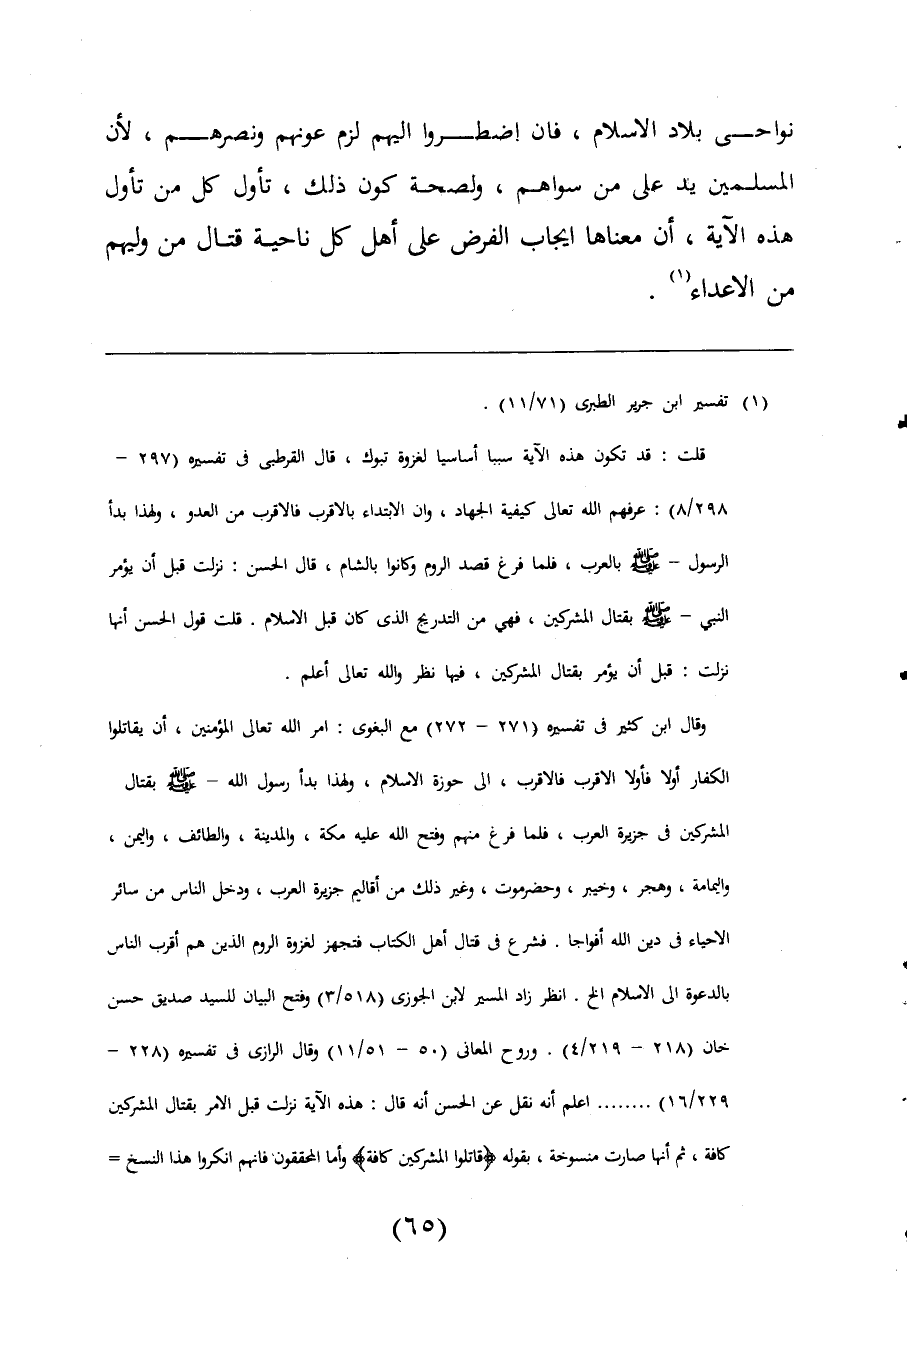 نواحى بلاد الاسلام ، فان إضطروا اليهم لزم عونهم ونصرهم ، لأن
المسلمين يد على من سواهم ، ولصحة كون ذلك ، تأول كل من تأول
هذه الآية ، أن معناها ايجاب الفرض على أهل كل ناحية قتال من وليهم
من الاعداء(١) .
(١) تفسير ابن جرير الطبرى (١١/٧١) .
قلت : قد تكون هذه الآية سببا أساسيا لغزوة تبوك ، قال القرطبى فى تفسيره (٢٩٧ –
٨/٢٩٨) : عرفهم الله تعالى كيفية الجهاد ، وان الابتداء بالاقرب فالاقرب من العدو ، ولهذا بدأ
الرسول – ﷺ بالعرب ، فلما فرغ قصد الروم وكانوا بالشام ، قال الحسن : نزلت قبل أن يؤمر
النبي – ﷺ بقتال المشركين ، فهي من التدريج الذى كان قبل الاسلام . قلت قول الحسن أنها
نزلت : قبل أن يؤمر بقتال المشركين ، فيها نظر والله تعالى أعلم .
وقال ابن كثير فى تفسيره (٢٧١ – ٢٧٢) مع البغوى : امر الله تعالى المؤمنين ، أن يقاتلوا
الكفار أولا فأولا الاقرب فالاقرب ، الى حوزة الاسلام ، ولهذا بدأ رسول الله – ﷺ بقتال
المشركين فى جزيرة العرب ، فلما فرغ منهم وفتح الله عليه مكة ، والمدينة ، والطائف ، واليمن ،
واليمامة ، وهجر ، وخيبر ، وحضرموت ، وغير ذلك من أقاليم جزيرة العرب ، ودخل الناس من سائر
الاحياء فى دين الله أفواجا . فشرع فى قتال أهل الكتاب فتجهز لغزوة الروم الذين هم أقرب الناس
بالدعوة الى الاسلام الخ . انظر زاد المسير لابن الجوزى (٣/٥١٨) وفتح البيان للسيد صديق حسن
خان (٢١٨ – ٤/٢١٩) . وروح المعانى (٥٠ – ١١/٥١) وقال الرازى فى تفسيره (٢٢٨ –
١٦/٢٢٩) ........ اعلم أنه نقل عن الحسن أنه قال : هذه الآية نزلت قبل الامر بقتال المشركين
كافة ، ثم أنها صارت منسوخة ، بقوله ﴿قاتلوا المشركين كافة﴾ وأما المحققون فانهم انكروا هذا النسخ =
(٦٥)